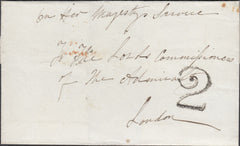 On Her Majesty's Service
To
The Lords Commissioners
of The Admiral
2
London